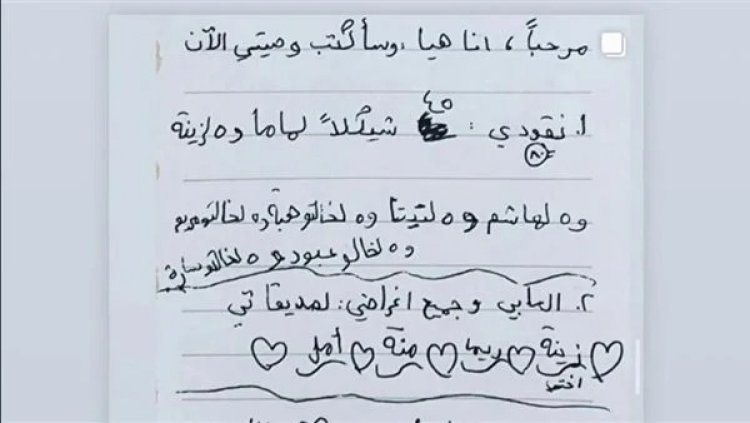 مرحباً، انا هيا، وسأكتب وصيتي الآن
١. نقودي: ٤٥ شيكلاً لماما و ٥ لزينة
٨٠
و ٥ لهاشم و ٥ لتيتا و ٥ لخالتو هبة و ٥ لخالتو مريم
و ٥ لخالو عبود و ٥ لخالتو سارة
٢. العابي وجميع اغراضي: لصديقاتي
زينة ريما منة أمل
اختي